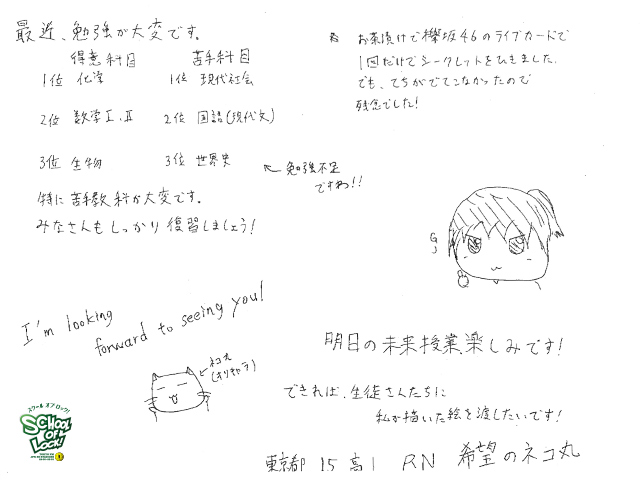 最近、勉強が大変です。
得意科目 苦手科目
1位 化学 1位 現代社会
2位 数学Ⅰ、Ⅱ 2位 国語(現代文)
3位 生物 3位 世界史
← 勉強不足
ですわ!!
特に苦手教科が大変です。
みなさんもしっかり復習しましょう!
お茶漬けで欅坂46のライブカードで
1回だけでシークレットをひきました。
でも、てちがでてこなかったので
残念でした!
I'm looking
forward to seeing you!
ネコ丸
(オリキャラ)
明日の未来授業、楽しみです!
できれば、生徒さんたちに
私が描いた絵を渡したいです!
東京都 15 高1 RN 希望のネコ丸
スクール オブ ロック!
SCHOOL
OF
LOCK!